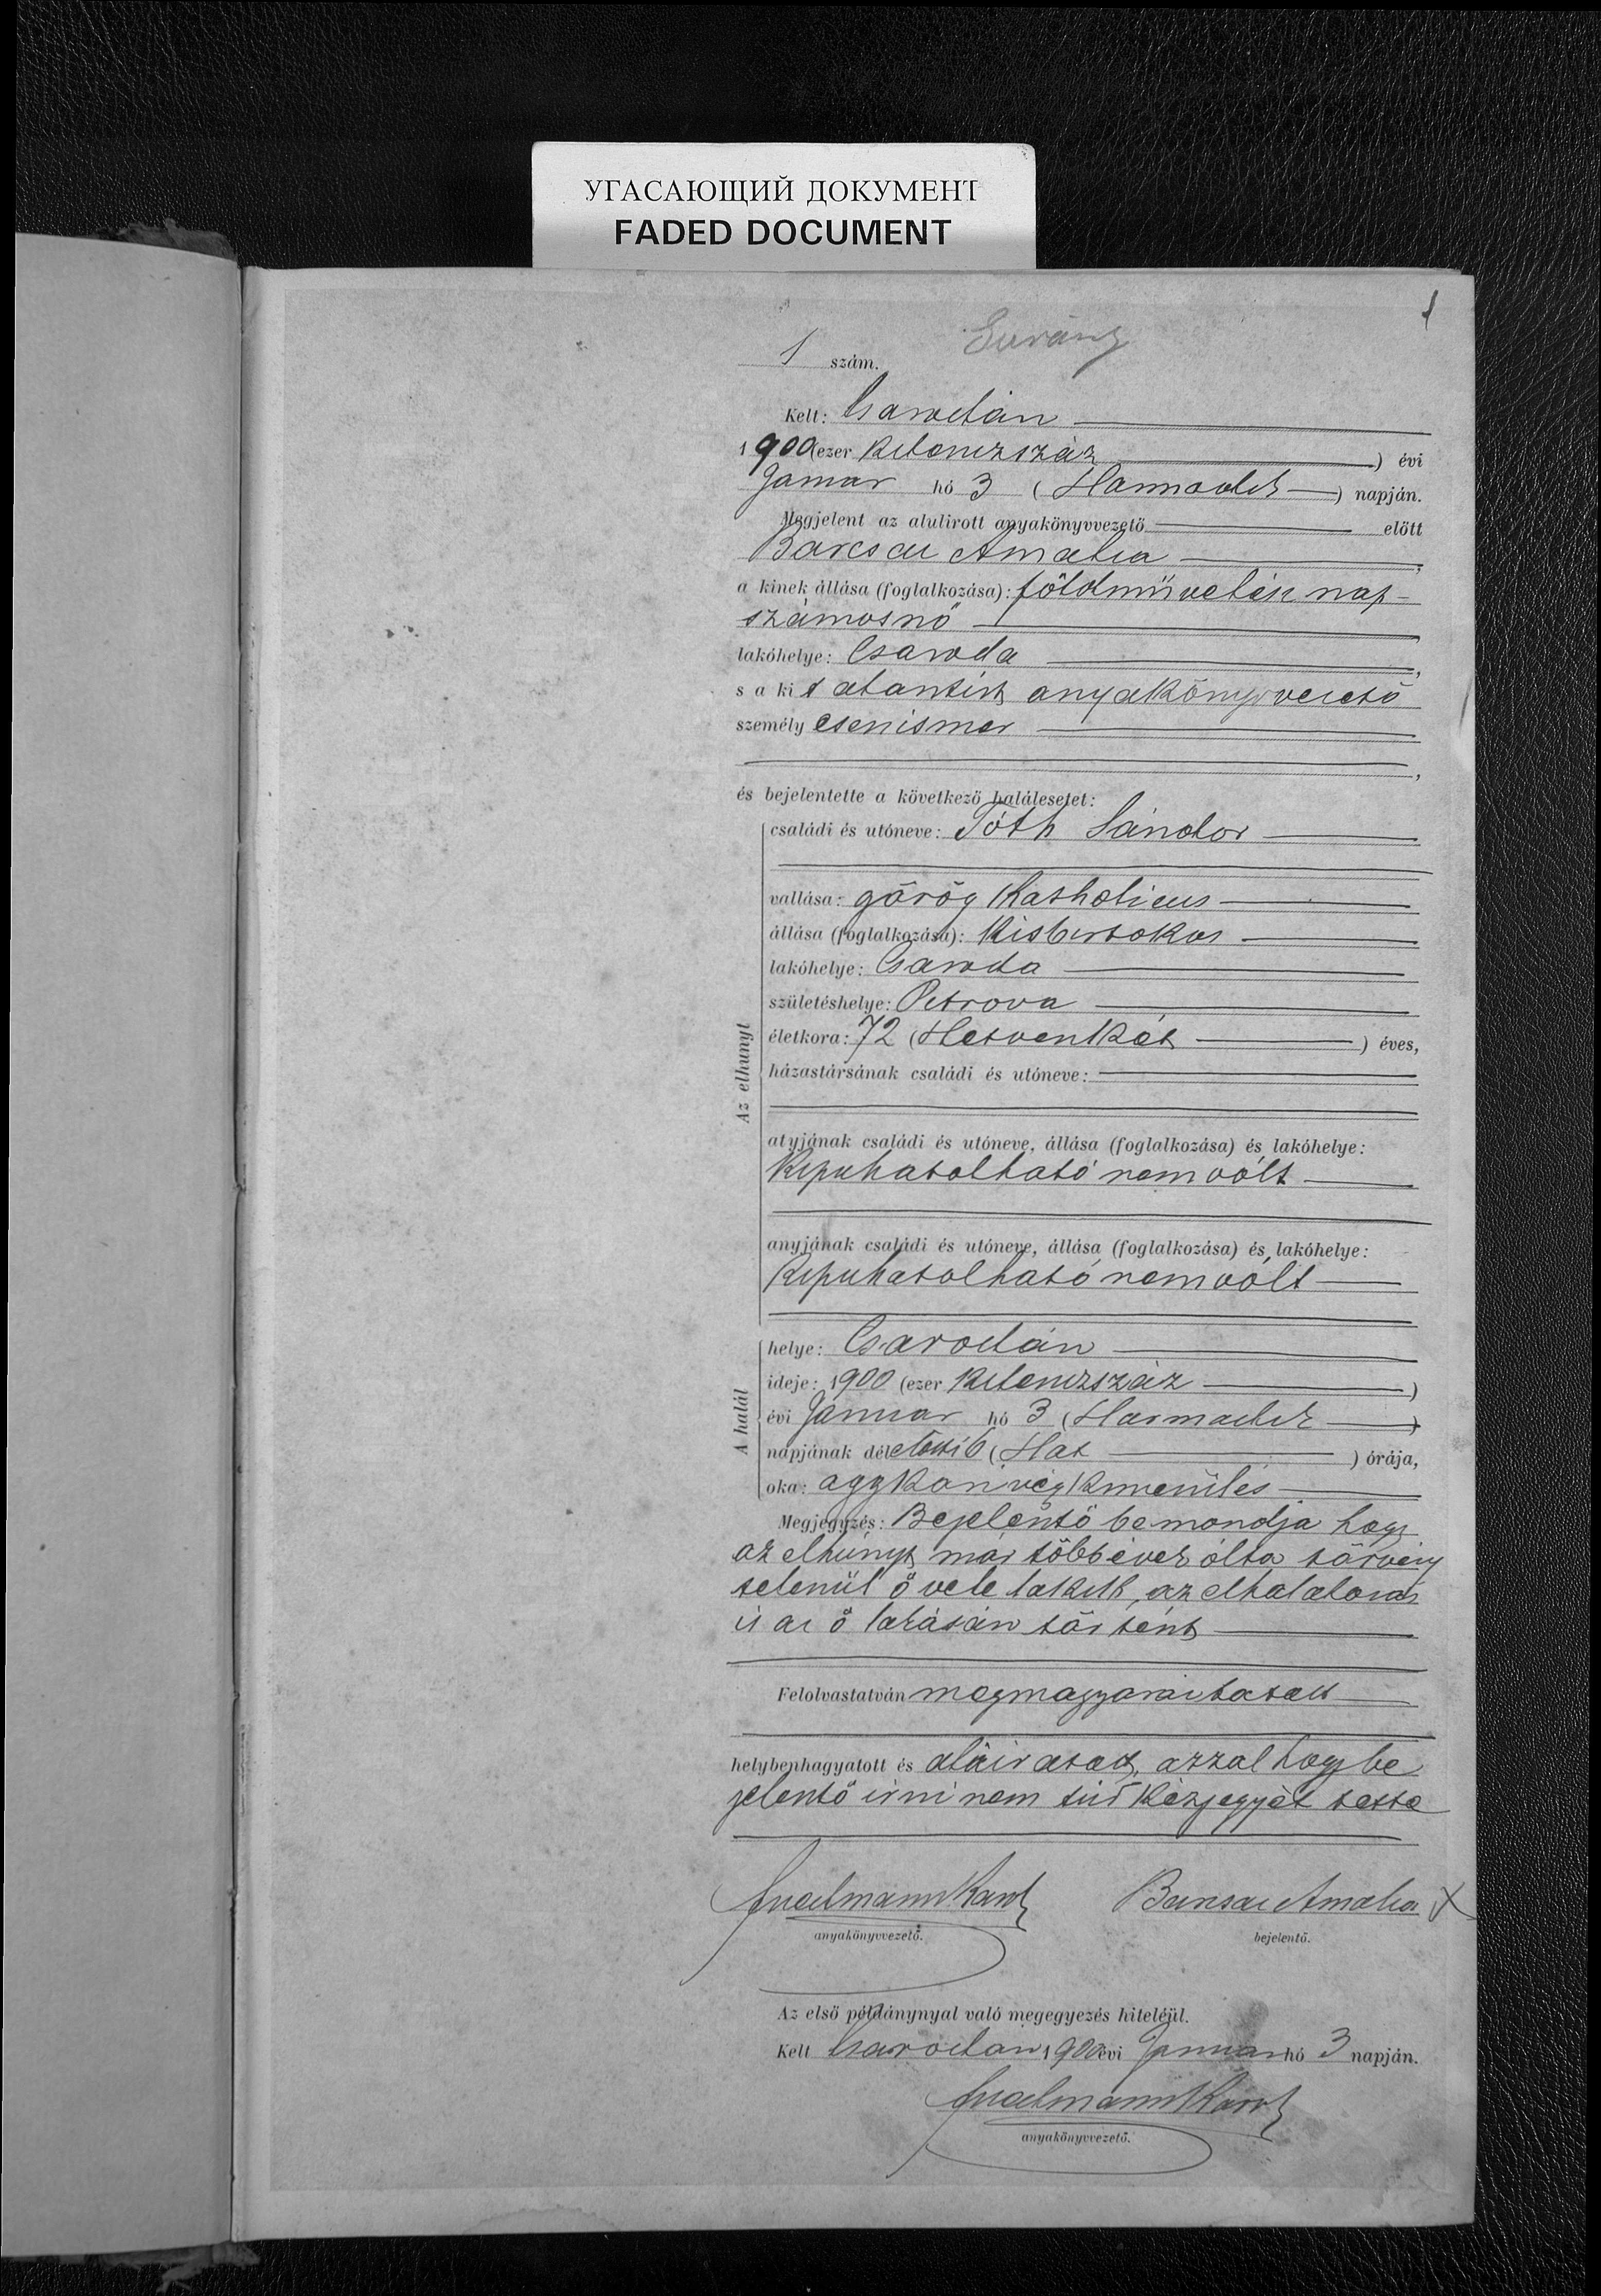 УГАСАЮЩИЙ ДОКУМЕНТ
FADED DOCUMENT
1
1 szám.
Kelt: Csarodán
1900 (ezer kilenczszáz ) évi
Januar hó 3 ( Harmadik ) napján.
Megjelent az alulirott anyakönyvvezető előtt
Barcsai Amalia ,
a kinek állása (foglalkozása): földmüvelési nap-
számosnő
lakóhelye: Csaroda ,
s a kit alantirt anyakönyvvezető
személyesen ismer
,
és bejelentette a következő halálesetet:
Az elhunyt
családi és utóneve: Tóth Sándor
vallása: görög katholicus
állása (foglalkozása): kisbirtokos
lakóhelye: Csaroda
születéshelye: Petrova
életkora: 72 (Hetvenkét ) éves,
házastársának családi és utóneve:
atyjának családi és utóneve, állása (foglalkozása) és lakóhelye:
kipuhatolható nem vólt
anyjának családi és utóneve, állása (foglalkozása) és lakóhelye:
kipuhatolható nem vólt
A halál
helye: Csarodán
ideje: 1900 (ezer kilenczszáz )
évi Januar hó 3 (Harmadik )
napjának délelőtti 6 (Hat ) órája,
oka: aggkori végkimerülés
Megjegyzés: Bejelentő bemondja hogy
az elhúnyt már több évek ólta törvény
telenül ő vele lakik, az elhalalozás
is az ő lakásán történt
Felolvastatván megmagyaráztatott
helybenhagyatott és aláiratott, azzal hogy be
jelentő irni nem túd kézjegyét tette
anyakönyvvezető.
Barcsai Amalia X
bejelentő.
Az első példánynyal való megegyezés hiteléül.
Kelt Csarodán 1900 évi Januar hó 3 napján.
anyakönyvvezető.